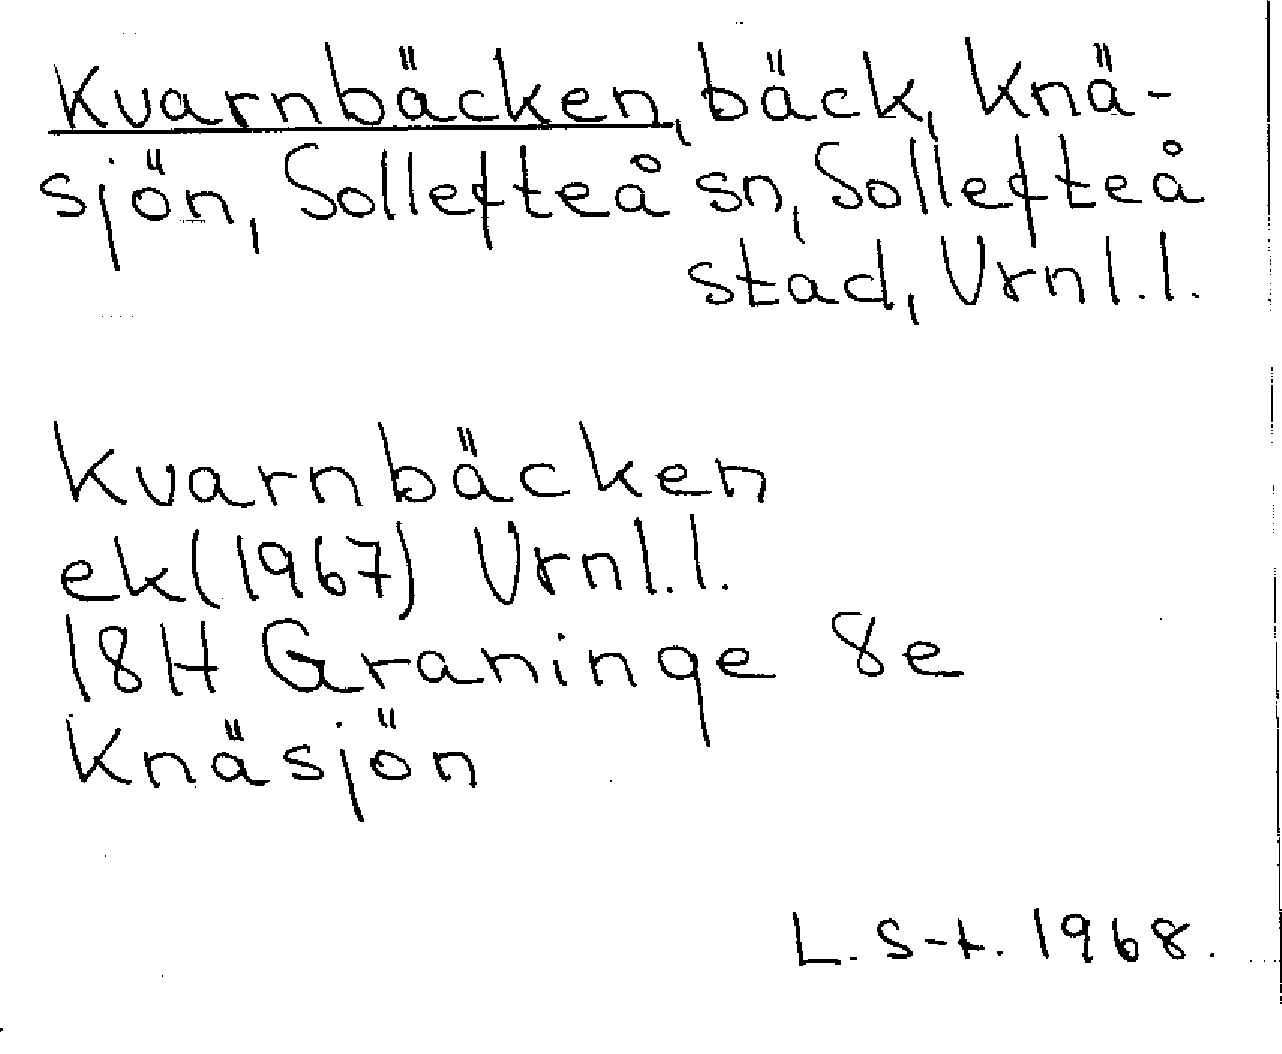 Kvarnbäcken, bäck, Knä-
sjön, Sollefteå sn, Sollefteå
stad, Vrnl.l.
Kvarnbäcken
ek(1967) Vrnl.l.
18H Graninge 8e
Knäsjön
L. S-t. 1968.